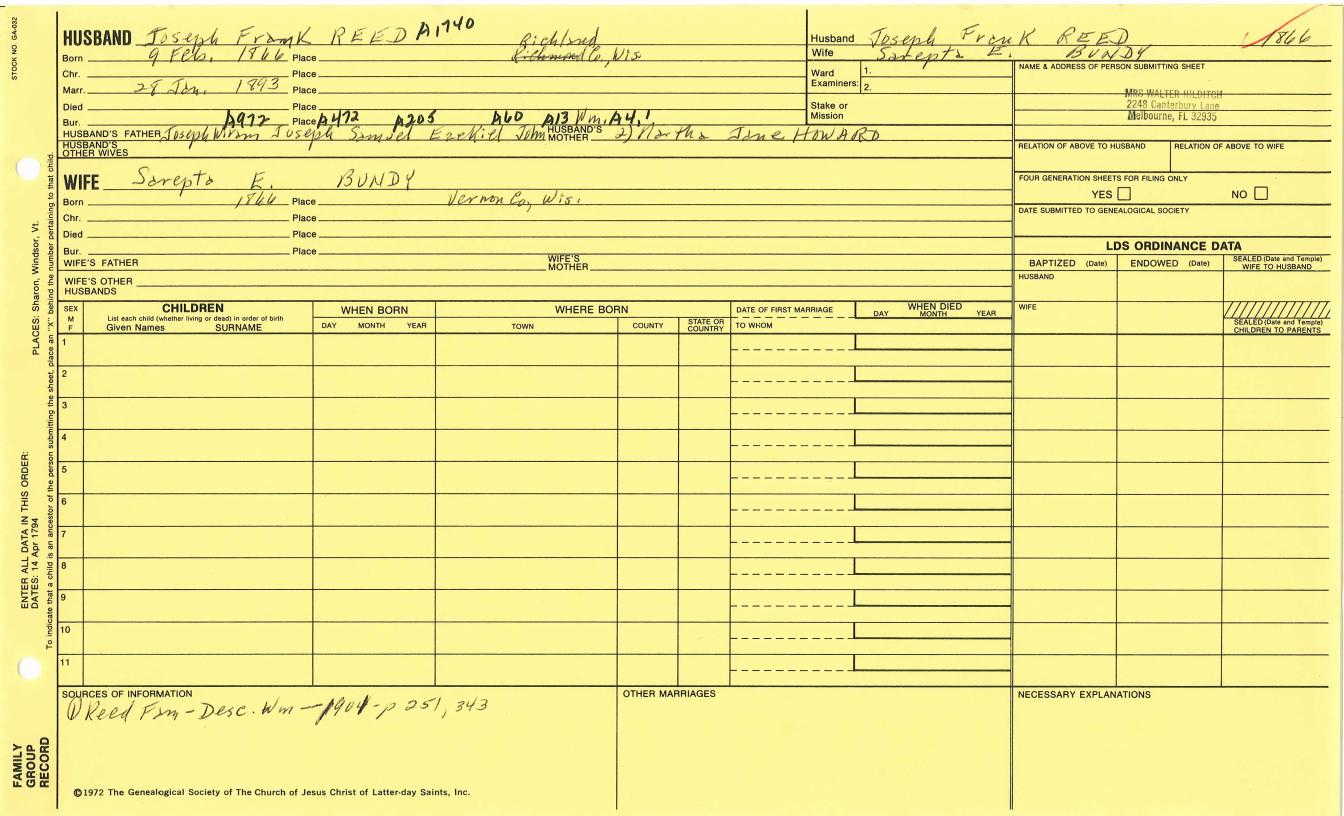 STOCK NO. GA-032
HUSBAND Joseph Frank REED A1740
Born 9 Feb. 1866 Place Richland Richmond Co, Wis
Chr. Place
Marr. 28 Jan. 1893 Place
Died Place
Bur. Place
A972 A472 A205 A60 A13 Wm, A4,1
HUSBAND'S FATHER Joseph Hiram Joseph Samuel Ezekiel John HUSBAND'S MOTHER 2) Martha Jane HOWARD
HUSBAND'S OTHER WIVES
Husband Joseph Frank REED 1866
Wife Sarepta E. BUNDY
Ward Examiners: 1.
2.
Stake or Mission
NAME & ADDRESS OF PERSON SUBMITTING SHEET
MRS WALTER HILDITCH
2248 Canterbury Lane
Melbourne, FL 32935
RELATION OF ABOVE TO HUSBAND RELATION OF ABOVE TO WIFE
FOUR GENERATION SHEETS FOR FILING ONLY
YES NO
DATE SUBMITTED TO GENEALOGICAL SOCIETY
WIFE Sarepta E. BUNDY
Born 1866 Place Vernon Co, Wis.
Chr. Place
Died Place
Bur. Place
WIFE'S FATHER WIFE'S MOTHER
WIFE'S OTHER HUSBANDS
LDS ORDINANCE DATA
BAPTIZED (Date) ENDOWED (Date) SEALED (Date and Temple) WIFE TO HUSBAND
HUSBAND
WIFE
SEALED (Date and Temple) CHILDREN TO PARENTS
SEX M F
CHILDREN
List each child (whether living or dead) in order of birth
Given Names SURNAME
WHEN BORN
DAY MONTH YEAR
WHERE BORN
TOWN COUNTY STATE OR COUNTRY
DATE OF FIRST MARRIAGE
TO WHOM
WHEN DIED
DAY MONTH YEAR
1
2
3
4
5
6
7
8
9
10
11
SOURCES OF INFORMATION
① Reed Fam - Desc. Wm - 1904 - p 251, 343
OTHER MARRIAGES
NECESSARY EXPLANATIONS
©1972 The Genealogical Society of The Church of Jesus Christ of Latter-day Saints, Inc.
FAMILY GROUP RECORD
ENTER ALL DATA IN THIS ORDER:
DATES: 14 Apr 1794
PLACES: Sharon, Windsor, Vt.
To indicate that a child is an ancestor of the person submitting the sheet, place an "X" behind the number pertaining to that child.